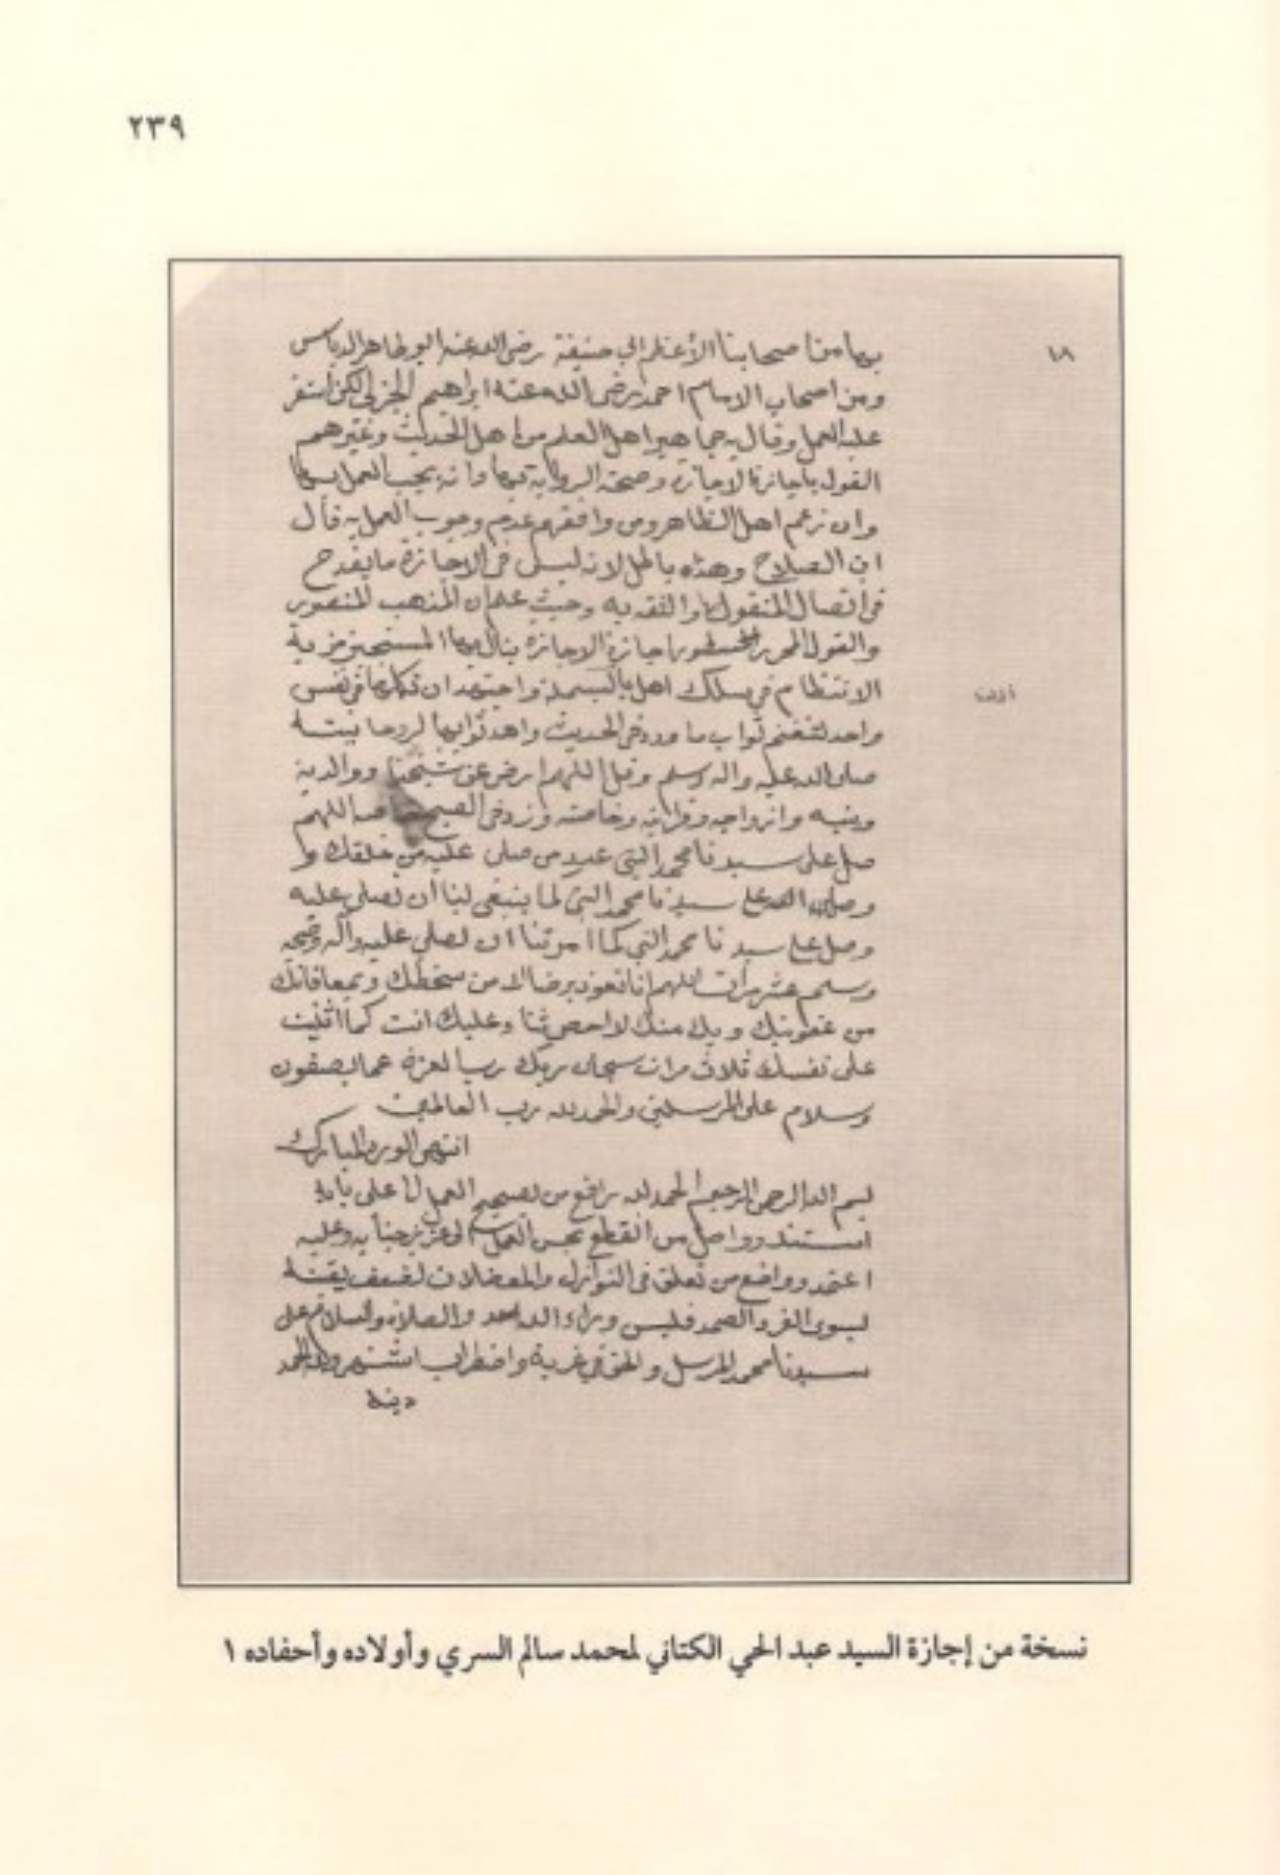 ٢٣٩
١٨
بها من أصحابنا الأعظم أبي حنيفة رضي الله عنه ابو طاهر الدباس
ومن اصحاب الامام احمد رضي الله عنه ابراهيم الحربي لكن استقر
عليه العمل وقال به جماهير اهل العلم من اهل الحديث وغيرهم
القول باجازة الاجازة وصحة الرواية بها وانه يجب العمل بها
وان زعم اهل الظاهر ومن وافقهم عدم وجوب العمل به قال
ابن الصلاح وهذه باطل لانه ليس في الاجازة ما يقدح
في اتصال المنقول بها والثقة به وحيث علمت المذهب المنصور
والقول المحرر اجازة الاجازة ينال بها المستجيز مزية
الانتظام في سلك اهل بالبسملة واجتهد ان تكررها في نفس
واحد لتغنم ثواب ما ورد في الحديث واهد ثوابها لروحانيته
صلى الله عليه واله وسلم وقل اللهم ارض عن شيخنا ووالديه
وبنيه وازواجه وقرابته وخاصته وزد في الصبح اللهم
صل على سيدنا محمد النبي عدد من صلى عليه من خلقك و
وصل على سيدنا محمد النبي لما ينبغي لنا أن نصلي عليه
وصل على سيدنا محمد النبي كما امرتنا ان نصلي عليه وآله وصحبه
وسلم عشر مرات اللهم إنا نعوذ برضاك من سخطك وبمعافاتك
من عقوبتك وبك منك لا احصي ثناء عليك انت كما اثنيت
على نفسك ثلاث مرات سبحان ربك رب العزة عما يصفون
وسلام على المرسلين والحمد لله رب العالمين
انتهى الورد المبارك
بسم الله الرحمن الرحيم الحمد لله رافع من لصحيح العمل على بابه
استند وواصل من انقطع بحسن العمل لعزيز جنابه وعليه
اعتمد وواضع من تعلق في النوازل والمعضلات لضعف يقينه
لسوى الفرد الصمد فليس وراء الله احد والصلاة والسلام على
سيدنا محمد المرسل والحق في غربة واضطراب اشتهر ولله الحمد
دينه
نسخة من إجازة السيد عبد الحي الكتاني لمحمد سالم السري وأولاده وأحفاده ١